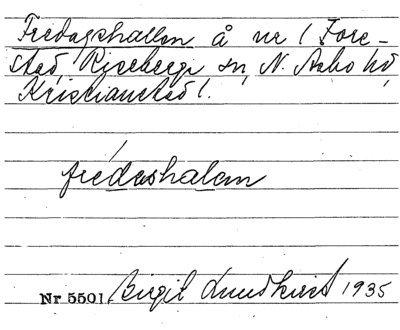 Fredagshallen å nr 1 Fore-
stad, Riseberga sn, N. Åsbo hd,
Kristianstad l.
fredashalen
Nr 5501 Birgit Lundkvist 1935